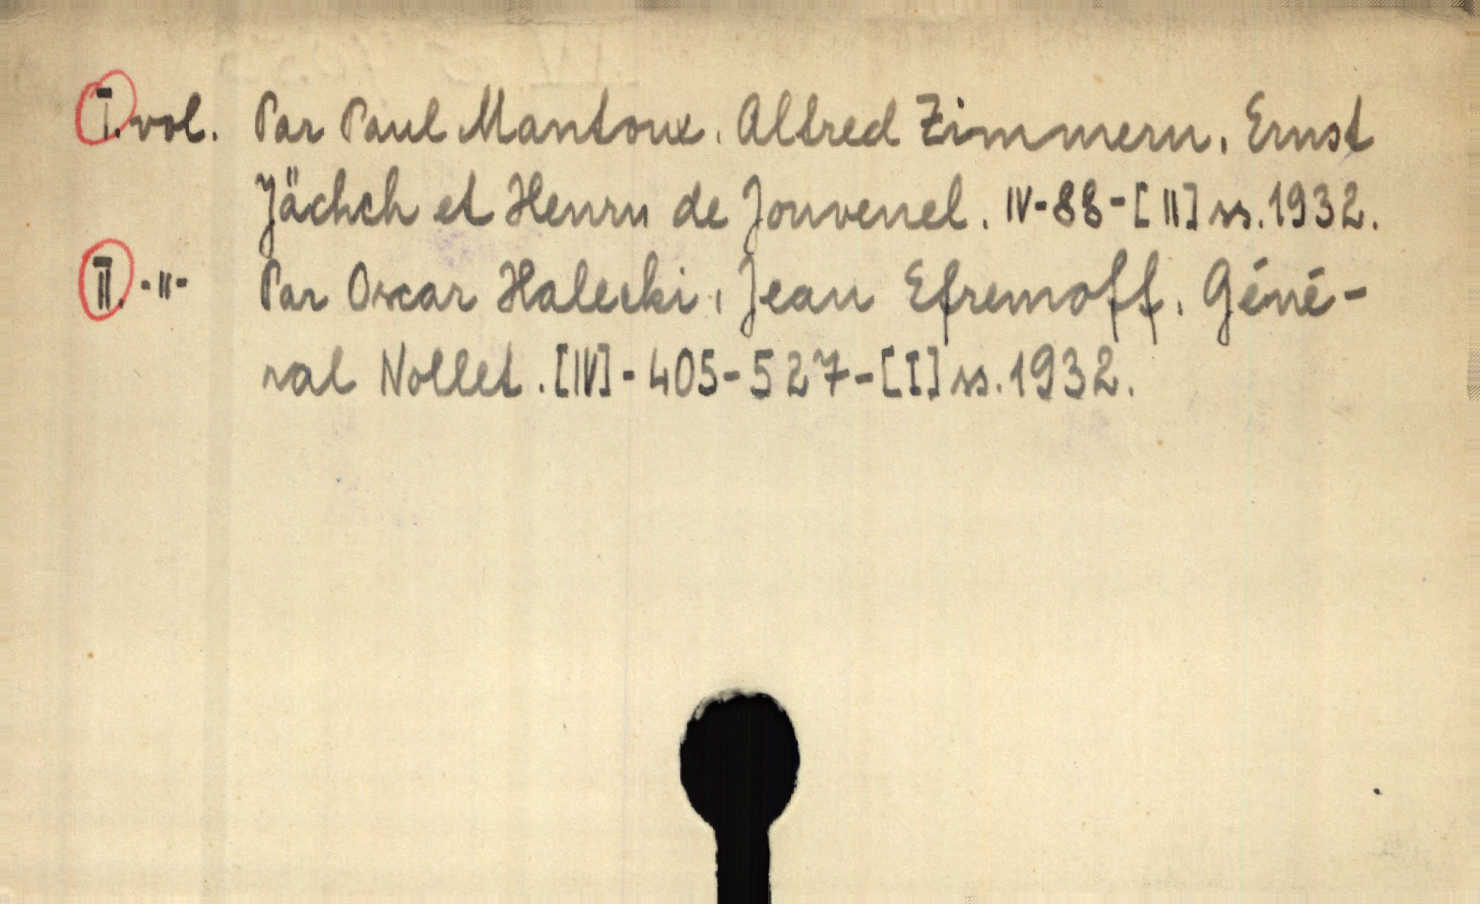 I. vol. Par Paul Mantoux, Alfred Zimmern, Ernst
Jächch et Henry de Jouvenel. IV-88-[II] ss. 1932.
II. -"- Par Oscar Halecki, Jean Efremoff, Géné-
ral Nollet. [IV]-405-527-[I] ss. 1932.